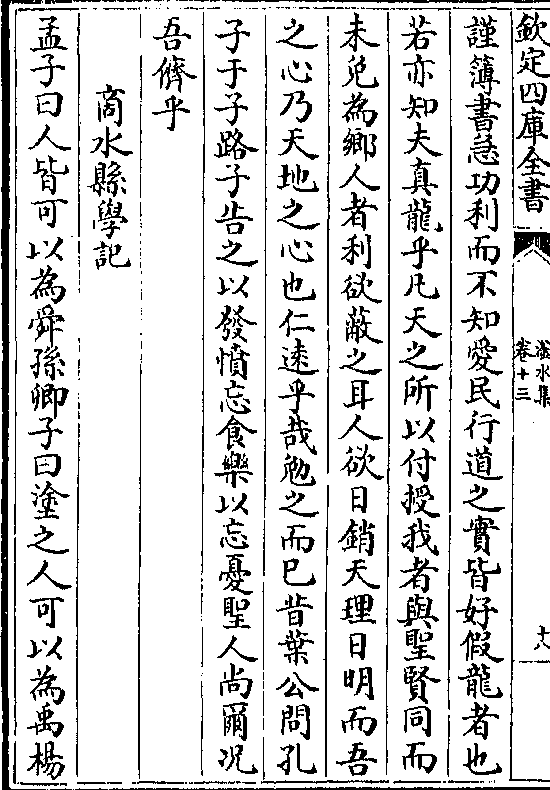 欽定四庫全書
滏水集
卷十三
十八
謹簿書急功利而不知愛民行道之實皆好假龍者也
若亦知夫真龍乎凡天之所以付授我者與聖賢同而
未免為鄉人者利欲蔽之耳人欲日銷天理日明而吾
之心乃天地之心也仁遠乎哉勉之而已昔葉公問孔
子于子路子告之以發憤忘食樂以忘憂聖人尚爾况
吾儕乎
商水縣學記
孟子曰人皆可以為舜孫卿子曰塗之人可以為禹楊